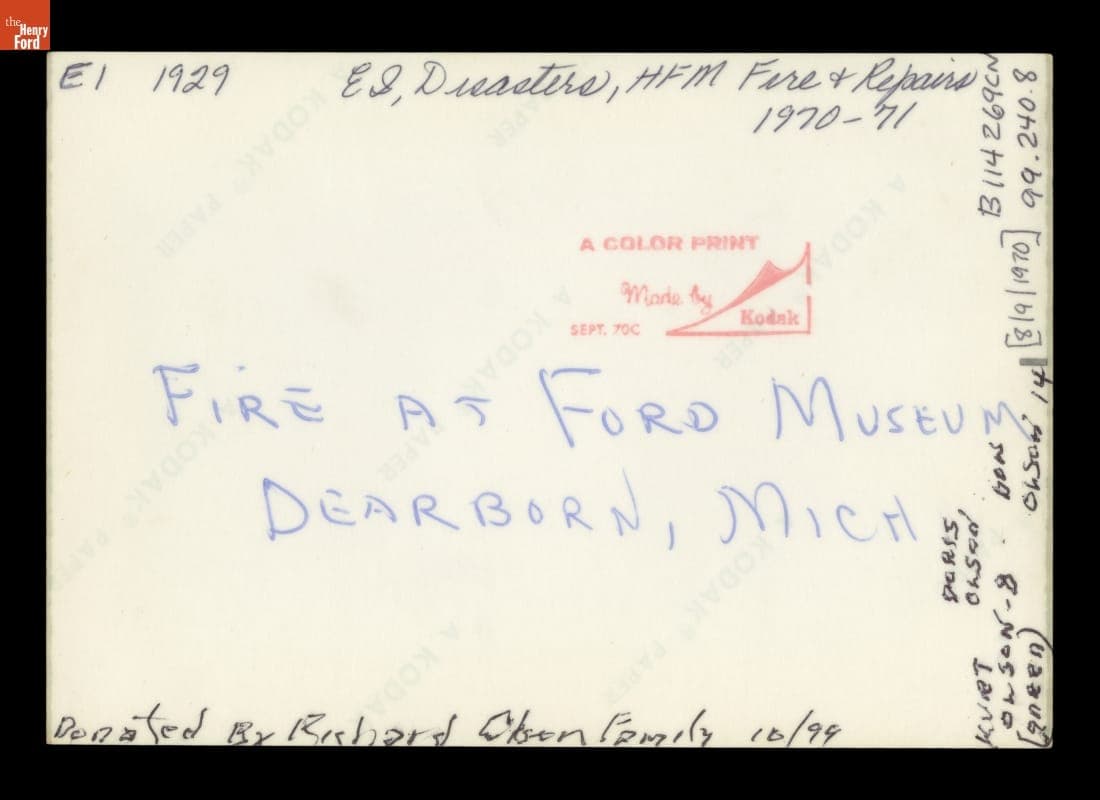 the
Henry
Ford
EI 1929
EI, Disasters, HFM Fire & Repairs
1970-71
B114269CN
99.240.8
[8/9/1970]
A COLOR PRINT
Made by
Kodak
SEPT. 70C
FIRE AT FORD MUSEUM
DEARBORN, MICH
DORIS
OLSON,
KURT
OLSON-8
[GREEN]
DON
OLSON 14
Donated By Richard Olson Family 10/99
A KODAK PAPER
A KODAK PAPER
A KODAK PAPER